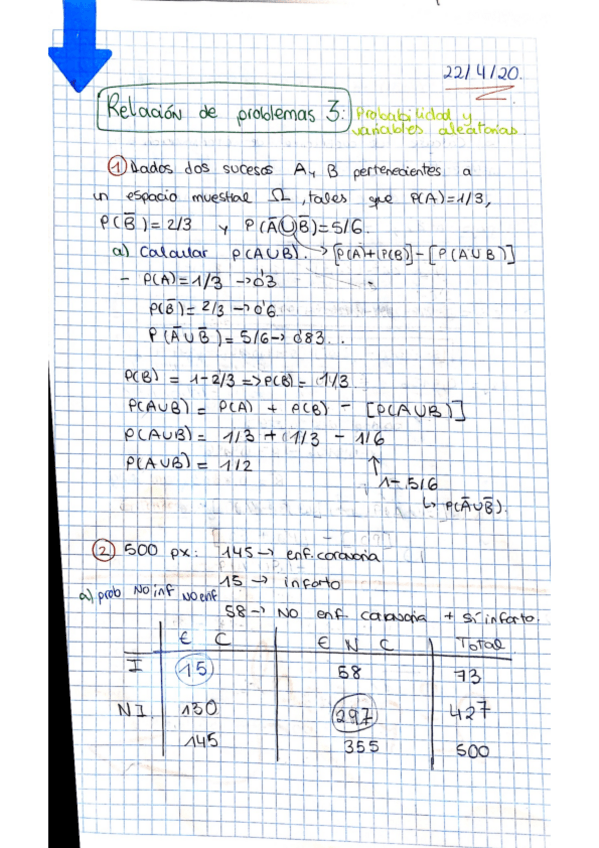 22/4/20.
Relación de problemas 3: Probabilidad y
variables aleatorias.
① Dados dos sucesos A y B pertenecientes a
un espacio muestral Ω, tales que P(A)=1/3,
P(B̅)=2/3 y P(A̅∪B̅)=5/6.
a) Calcular P(A∪B). → [P(A)+P(B)]-[P(A∪B)]
- P(A)=1/3 → 0'3
P(B̅)= 2/3 → 0'6
P(A̅∪B̅)= 5/6 → 0'83...
P(B) = 1-2/3 => P(B)= 1/3
P(A∪B) = P(A) + P(B) - [P(A∪B)]
P(A∪B) = 1/3 + 1/3 - 1/6
P(A∪B) = 1/2
↑
1-5/6
↳ P(A̅∪B̅).
② 500 px: 145 → enf. coronaria
15 → infarto
a) prob No inf No enf
58 → NO enf. coronaria + sí infarto.
E C E N C Total
I 15 58 73
NI. 130 297 427
145 355 500